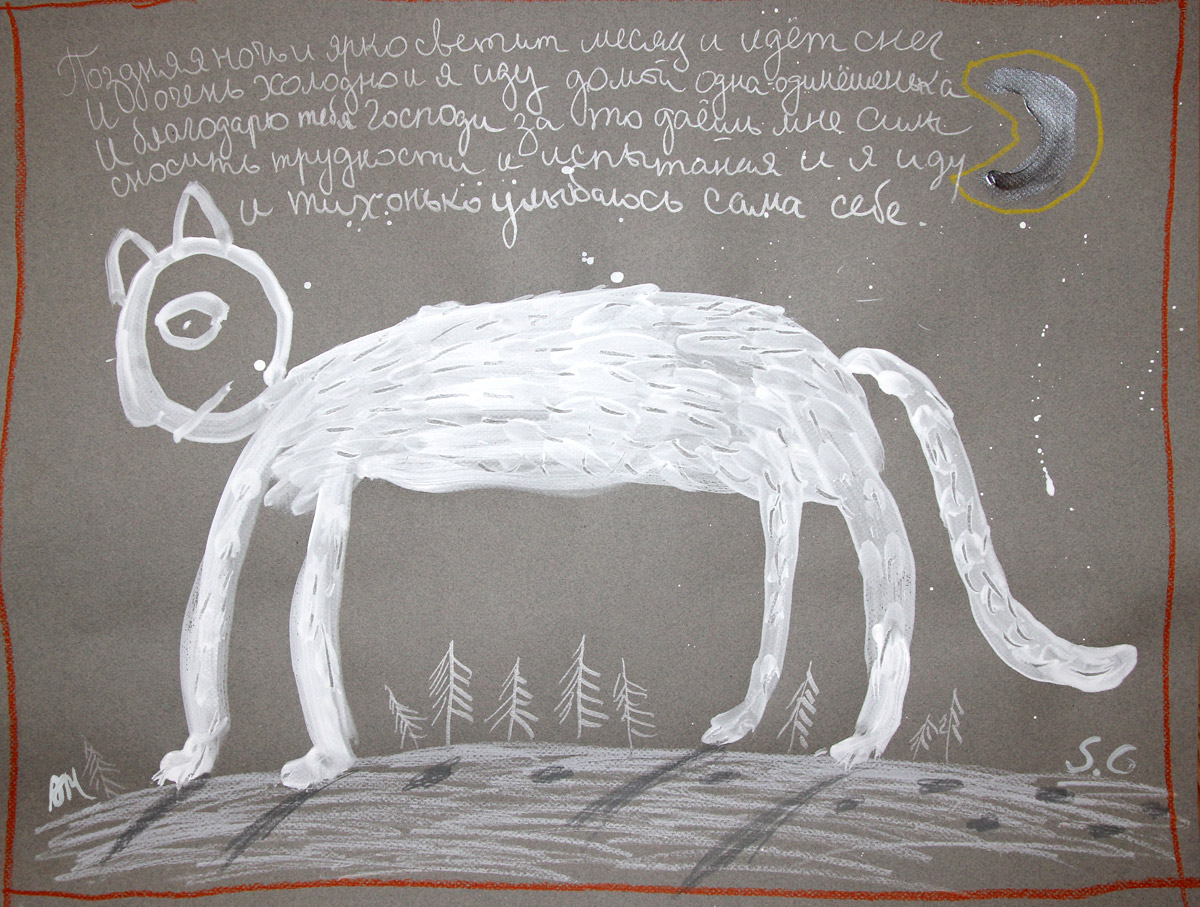 Поздняя ночь и ярко светит месяц и идёт снег
И очень холодно и я иду домой одна-одинёшенька
И благодарю тебя Господи за то даёшь мне силы
сносить трудности и испытания и я иду
и тихонько улыбаюсь сама себе.
S.G